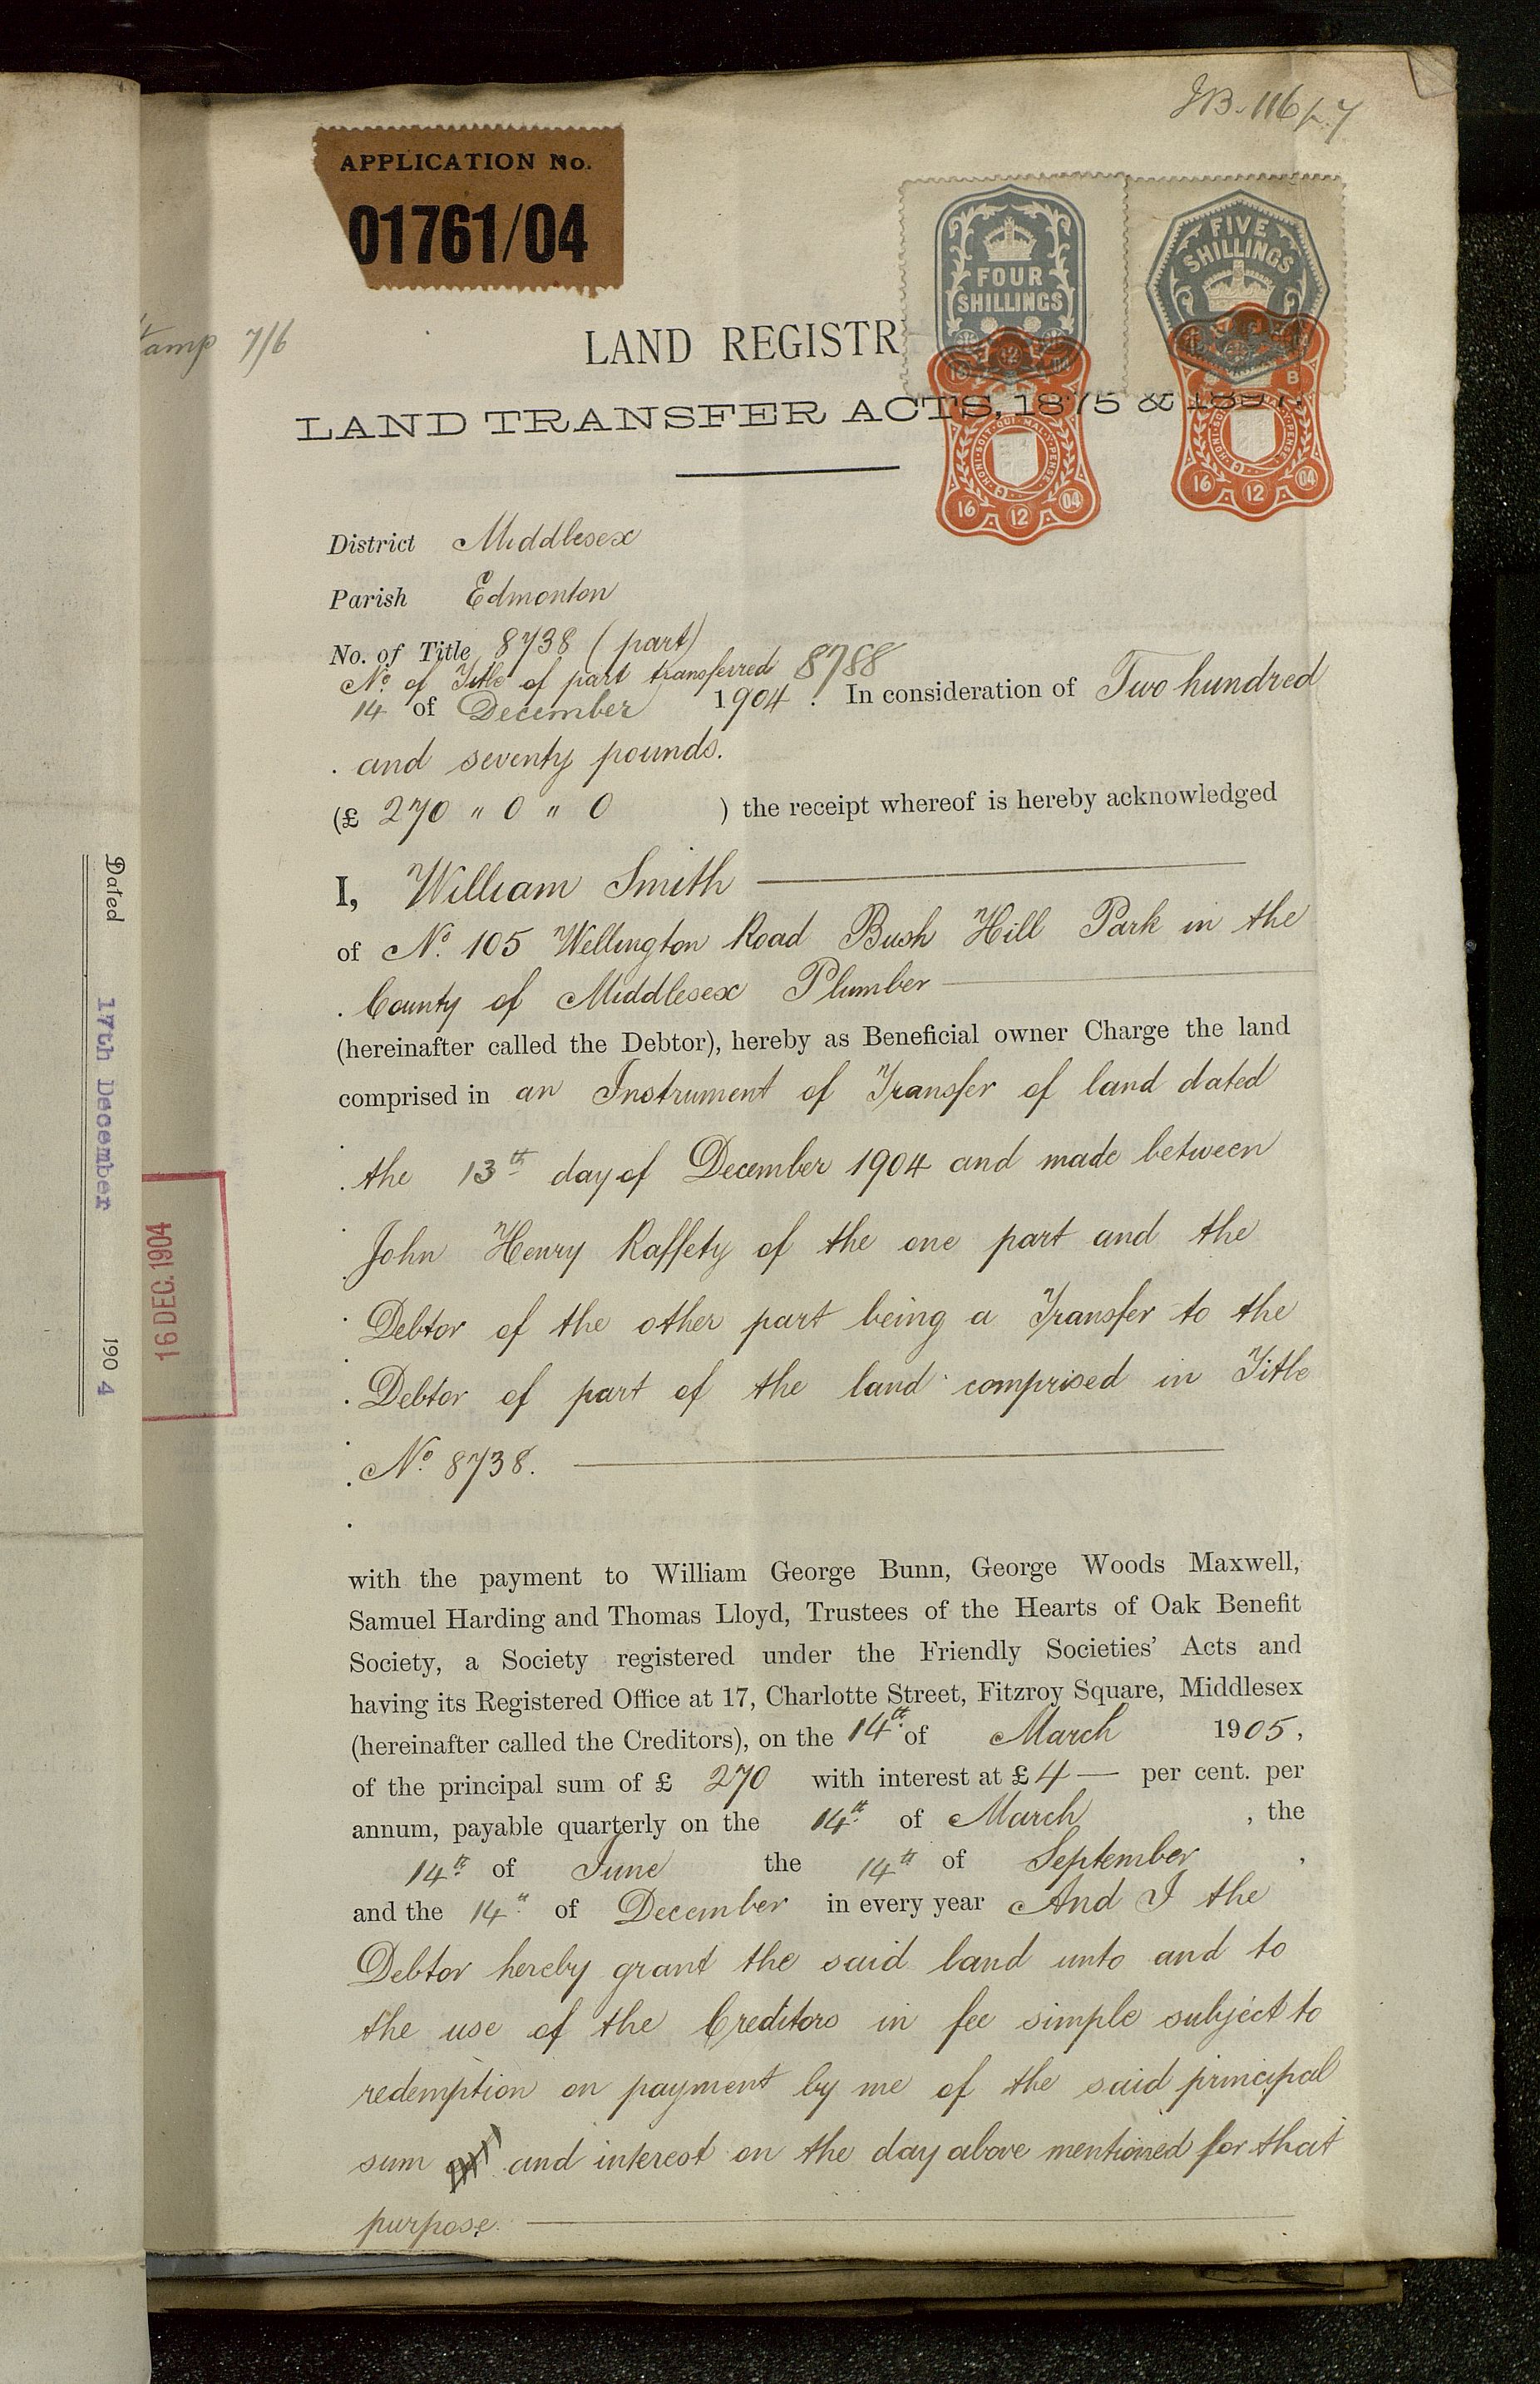 JB. 116/
APPLICATION No.
01761/04
FOUR
SHILLINGS
FIVE
SHILLINGS
tamp 7/6
LAND REGISTR
LAND TRANSFER ACTS, 1875 & 1897.
HONI·SOIT·QUI·MAL·Y·PENSE
16 12 04
B
16 12 04
District Middlesex
Parish Edmonton
No. of Title 8738 (part)
No. of Title of part transferred 8788
14 of December 1904. In consideration of Two hundred
and seventy pounds.
(£ 270 " 0 " 0 ) the receipt whereof is hereby acknowledged
I, William Smith
of No. 105 Wellington Road Bush Hill Park in the
County of Middlesex Plumber
(hereinafter called the Debtor), hereby as Beneficial owner Charge the land
comprised in an Instrument of Transfer of land dated
the 13th day of December 1904 and made between
John Henry Raffety of the one part and the
Debtor of the other part being a Transfer to the
Debtor of part of the land comprised in Title
No. 8738.
with the payment to William George Bunn, George Woods Maxwell,
Samuel Harding and Thomas Lloyd, Trustees of the Hearts of Oak Benefit
Society, a Society registered under the Friendly Societies' Acts and
having its Registered Office at 17, Charlotte Street, Fitzroy Square, Middlesex
(hereinafter called the Creditors), on the 14th of March 1905,
of the principal sum of £ 270 with interest at £4 — per cent. per
annum, payable quarterly on the 14th of March , the
14th of June the 14th of September ,
and the 14th of December in every year And I the
Debtor hereby grant the said land unto and to
the use of the Creditors in fee simple subject to
redemption on payment by me of the said principal
sum and interest on the day above mentioned for that
purpose.
Dated 17th December 1904
16 DEC. 1904